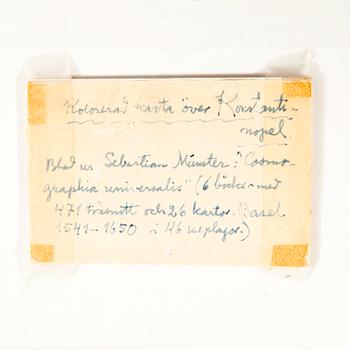 Kolorerad karta över Konstanti-
nopel.
Blad ur Sebastian Münster: "Cosmo-
graphia universalis" (6 böcker med
471 träsnitt och 26 kartor. Basel
1541–1650 i 46 upplagor.)